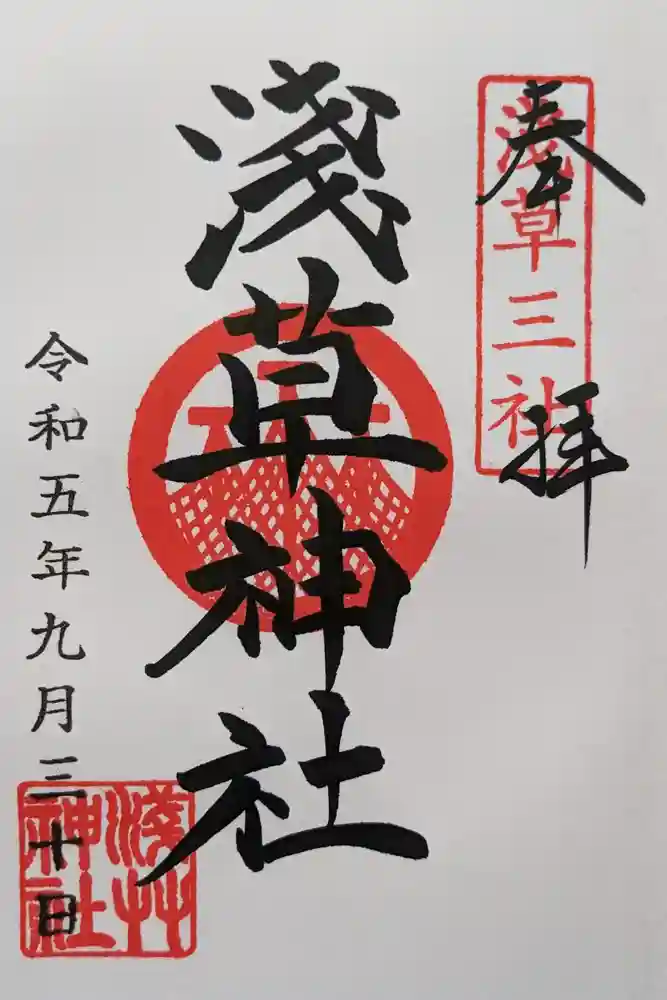 奉拝
淺草三社
淺草神社
令和五年九月三十日
淺艸神社